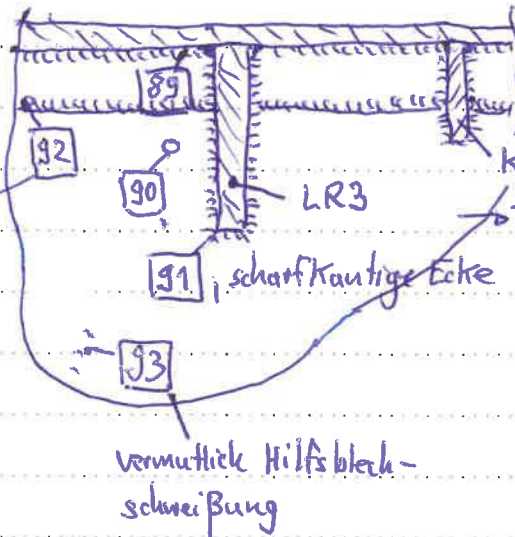 89
92
90
K
LR3
91
, scharfkantige Ecke
93
vermutlich Hilfsblech-
schweißung